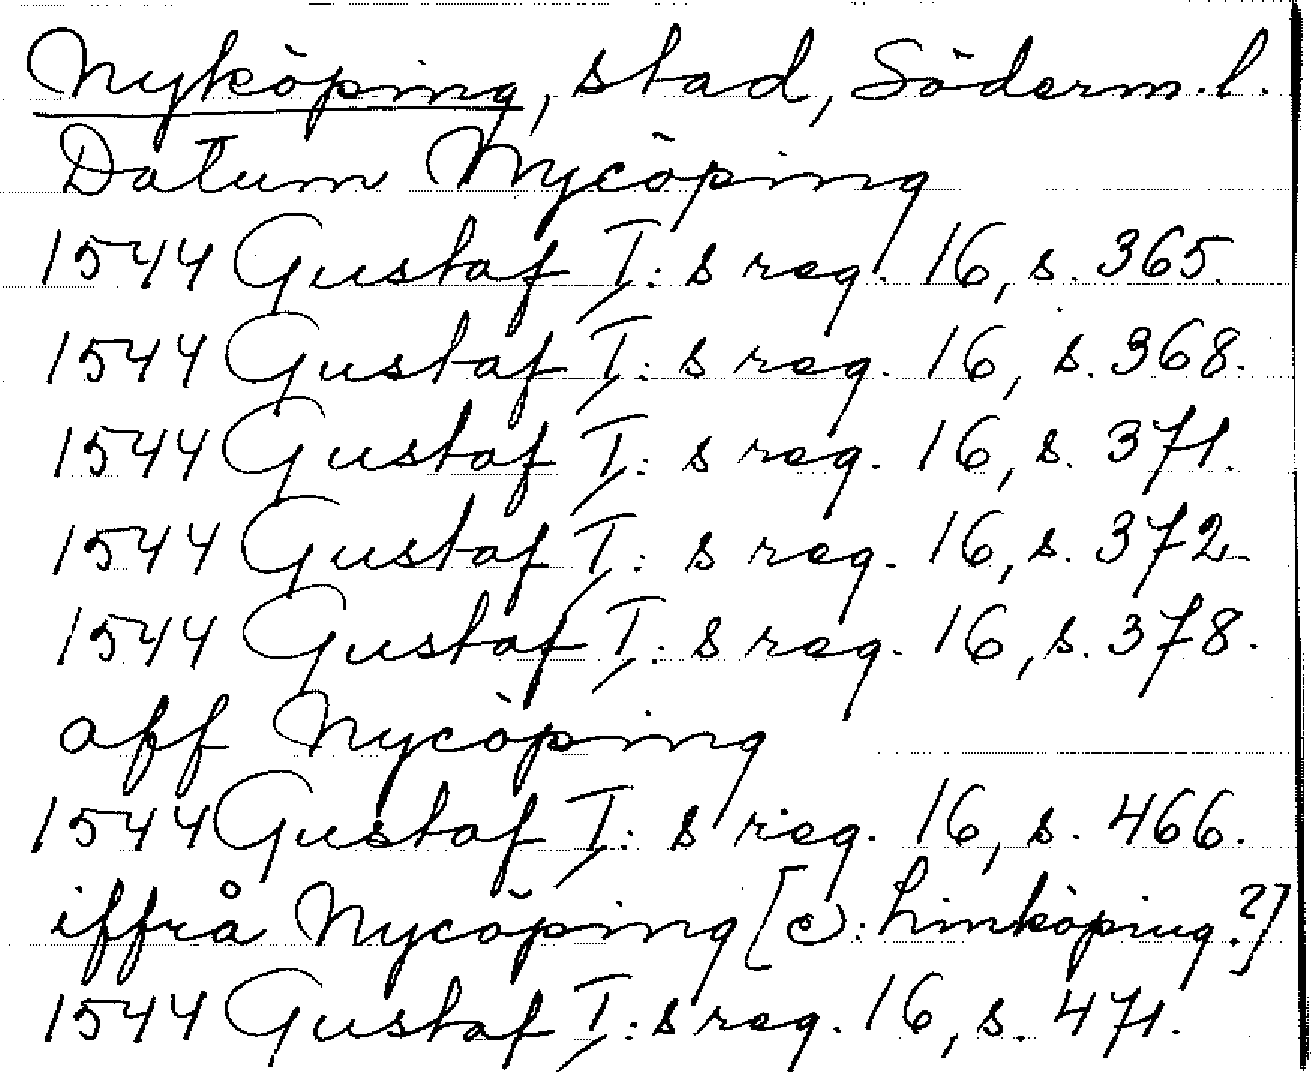 Nyköping, stad, Söderm.l.
Datum Nycöping
1544 Gustaf I:s reg. 16, s. 365.
1544 Gustaf I:s reg. 16, s. 368.
1544 Gustaf I:s reg. 16, s. 371.
1544 Gustaf I:s reg. 16, s. 372
1544 Gustaf I:s reg. 16, s. 378.
aff Nycöping
1544 Gustaf I:s reg. 16, s. 466.
iffrå Nycöping [ɔ: Linköping?]
1544 Gustaf I:s reg. 16, s. 471.